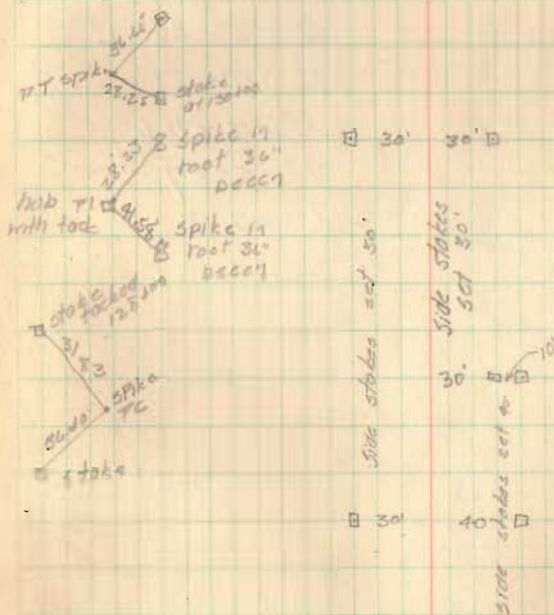 PT spike
28.25
stake
at 130+00
28.23
spike in
root 36"
beech
hub PI
with tack
41.58
spike in
root 36"
beech
stake
tacked
128+00
31.83
spike
PC
36.40
stake
30'
30'
side stakes set 30'
side stakes
set 30'
30
10'
30'
40
side stakes set